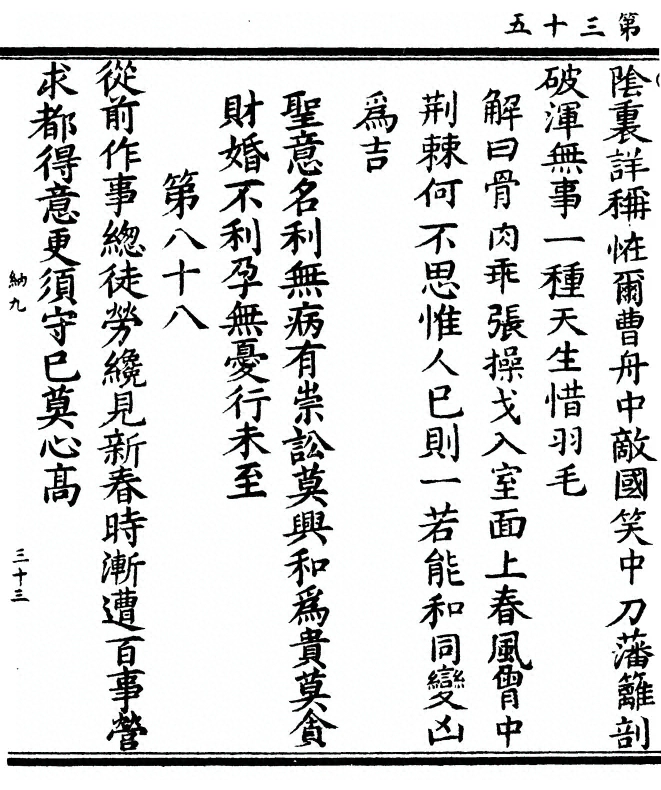 第三十五
陰裏詳稱恠爾曹舟中敵國笑中刀藩籬剖
破渾無事一種天生惜羽毛
解曰骨肉乖張操戈入室面上春風胷中
荆棘何不思惟人巳則一若能和同變凶
爲吉
聖意名利無病有祟訟莫興和爲貴莫貪
財婚不利孕無憂行未至
第八十八
從前作事總徒勞纔見新春時漸遭百事營
求都得意更須守巳莫心高
納九
三十三